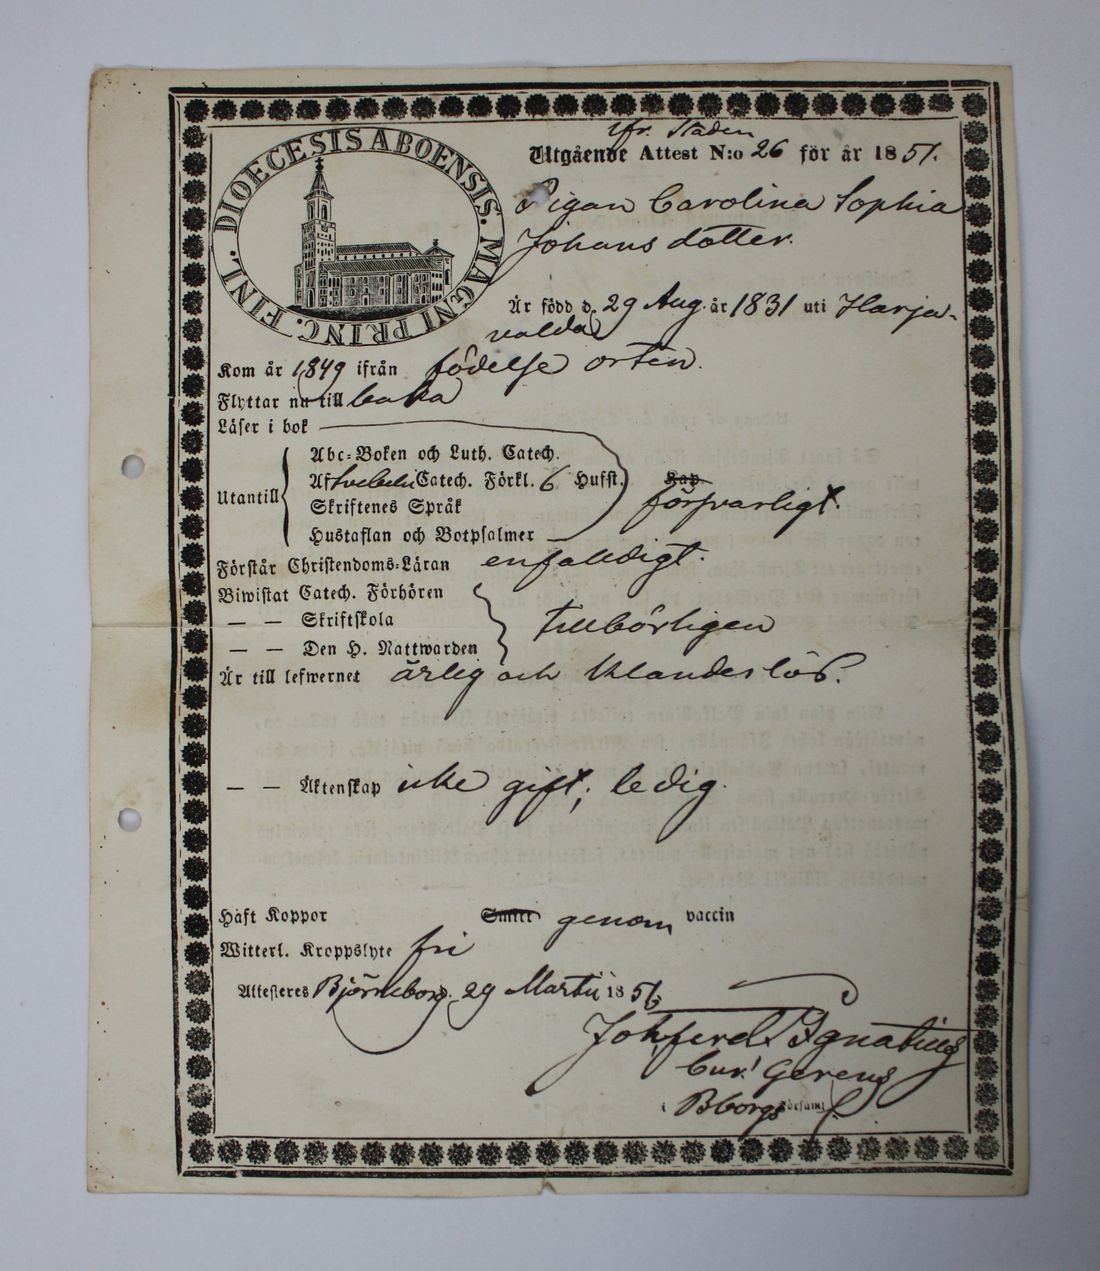 DIOECESIS ABOENSIS. MAGNI PRINC. FINL.
ifr. Staden
Utgående Attest N:o 26 för år 1851.
Pigan Carolina Sophia
Johans dotter.
Är född d. 29 Aug. år 1831 uti Harja-
valda
Kom år 1849 ifrån födelse orten.
Flyttar nu till baka
Läser i bok
Utantill
Abc-Boken och Luth. Catech.
Af Catech. Förkl. 6 Hufst. Kap.
Skriftenes Språk
försvarligt.
Hustaflan och Botpsalmer
Förstår Christendoms-Läran enfaldigt.
Biwistat Catech. Förhören
— — Skriftskola
tillbörligen
— — Den H. Nattwarden
Är till lefwernet ärlig och klanderlös.
— — Äktenskap icke gift; ledig.
Haft Koppor Smitt genom vaccin
Witterl. Kroppslyte fri
Attesteres Björneborg. 29 Martii 1851
Joh. Ferd. Ignatius
Cur. Gerens
i Bborgs Församl.